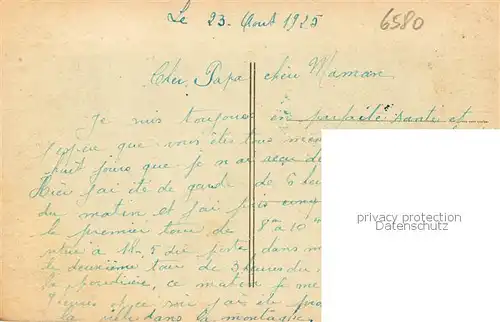 Le 23 Aout 1925
6580
Cher Papa chère Maman
Je suis toujours en parfaite santé et
j'espère que vous êtes tous
huit jours que je n'ai reçu de
Hier j'ai été de garde de 6
du matin et j'ai pris
le premier tour de 8h à 10
à 11.5 du poste dans
le deuxième tour de 3 heures du
la poudrière, ce matin je me
ce soir j'ai été
la ville dans la montagne
privacy protection
www.ansichtskarten-center.de